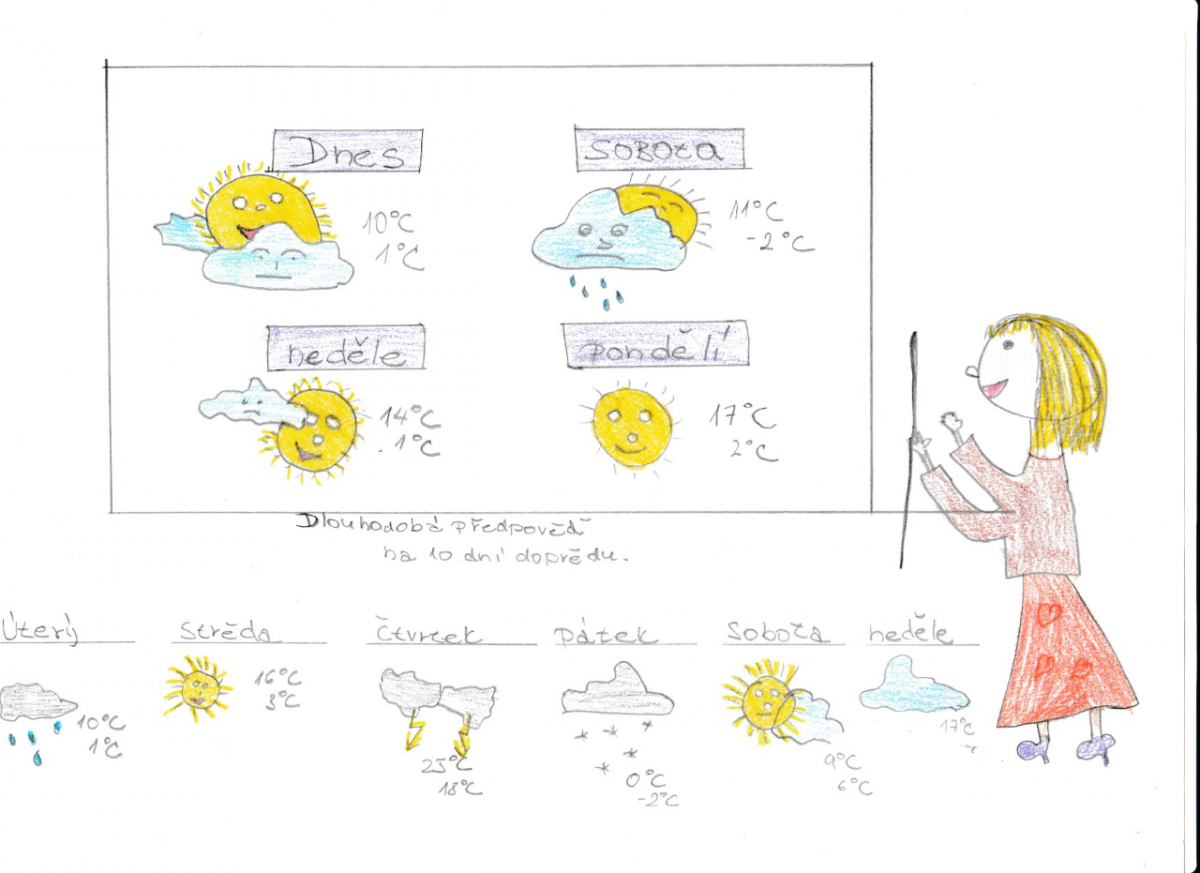 Dnes
10°C
1°C
SOBOTA
11°C
-2°C
neděle
14°C
1°C
pondělí
17°C
2°C
Dlouhodobá předpověď
na 10 dní dopředu.
Úterý
10°C
1°C
Středa
16°C
3°C
Čtvrtek
23°C
18°C
Pátek
0°C
-2°C
Sobota
9°C
6°C
neděle
17°C